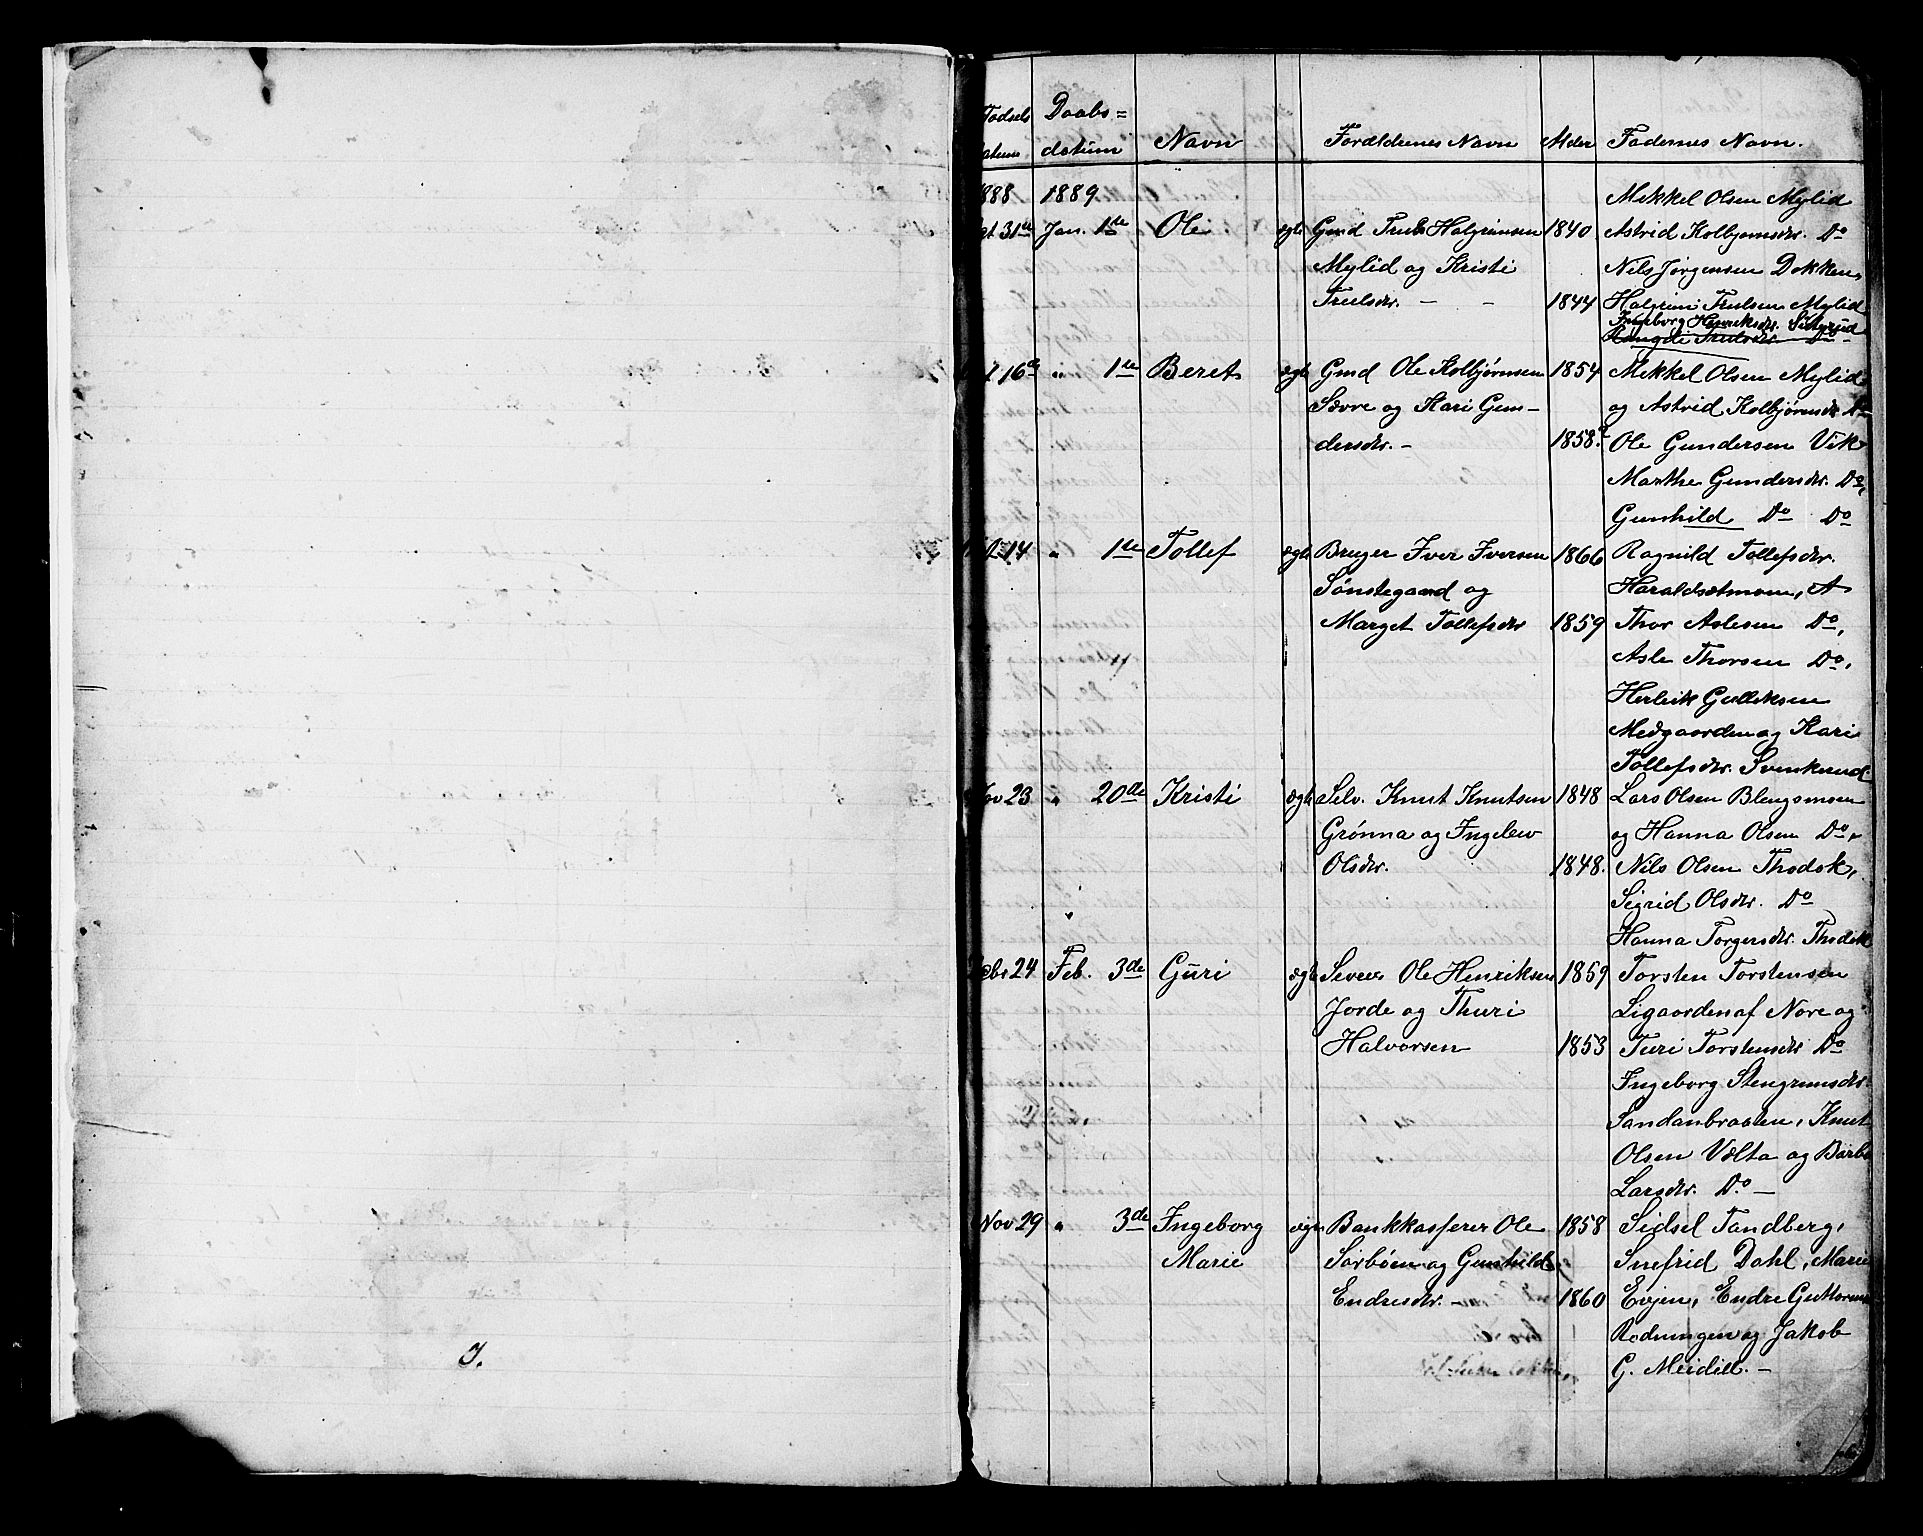 Daabs=
datum Navn Forældrenes Navn Alder Fadernes Navn.
1888 1889 Mekkel Olsen Mylid
31te Jan. 1ste Ole ægte Gmd Truls Halgrimsen 1840 Astrid Kolbjørnsdr. Do
Mylid og Kristi Nils Jørgensen Dokken,
Trulsdr. - - 1844 Halgrim Trulsen Mylid
Ingeborg Henriksdr.
Trulsdr. Do
16de " 1ste Beret ægte Gmd Ole Kolbjørnsen 1854 Mekkel Olsen Mylid
Sævre og Kari Gun- og Astrid Kolbjørnsdr Do
dersdr. - 1858? Ole Gundersen Vik
Marthe Gundersdr. Do,
Gunhild Do Do
14 " 1ste Tollef ægte Bruger Iver Iversen 1866 Ragnild Tollefsdr.
Sønstegaard og Haraldsetmoen, A
Marget Tollefsdr 1859 Thor Aslesen Do,
Asle Thorsen Do,
Herbrik Gulliksen
Medgaarden og Kari
Tollefsdr. Svenkerud
Nov 23 " 20de Kristi ægte Selv. Knut Knutsen 1848 Lars Olsen Blengsmoen
Grønna og Ingeleiv og Hanna Olsen Do,
Olsdr. 1848. Nils Olsen Thodok,
Sigrid Olsdr. Do
Hanna Torgersdr. Thodok
24 Feb. 3de Guri ægte Ole Henriksen 1859 Torsten Torstensen
Jorde og Thuri Ligaarden af Nore og
Halvorsen 1853 Turi Torstensdr Do
Ingeborg Stengrimsdr.
Sandanbraaten, Knut
Olsen Vælta og Barbo
Larsdr. Do -
Nov 29 " 3de Ingeborg ægte Bankkasserer Ole 1858 Sidsel Tandberg,
Marie Sørbøen og Gunhild Snefrid Dahl, Marie
Endresdr. - 1860 Evjen, Endre Guttorms
Rodningen og Jakob
G. Meidell. -
J.